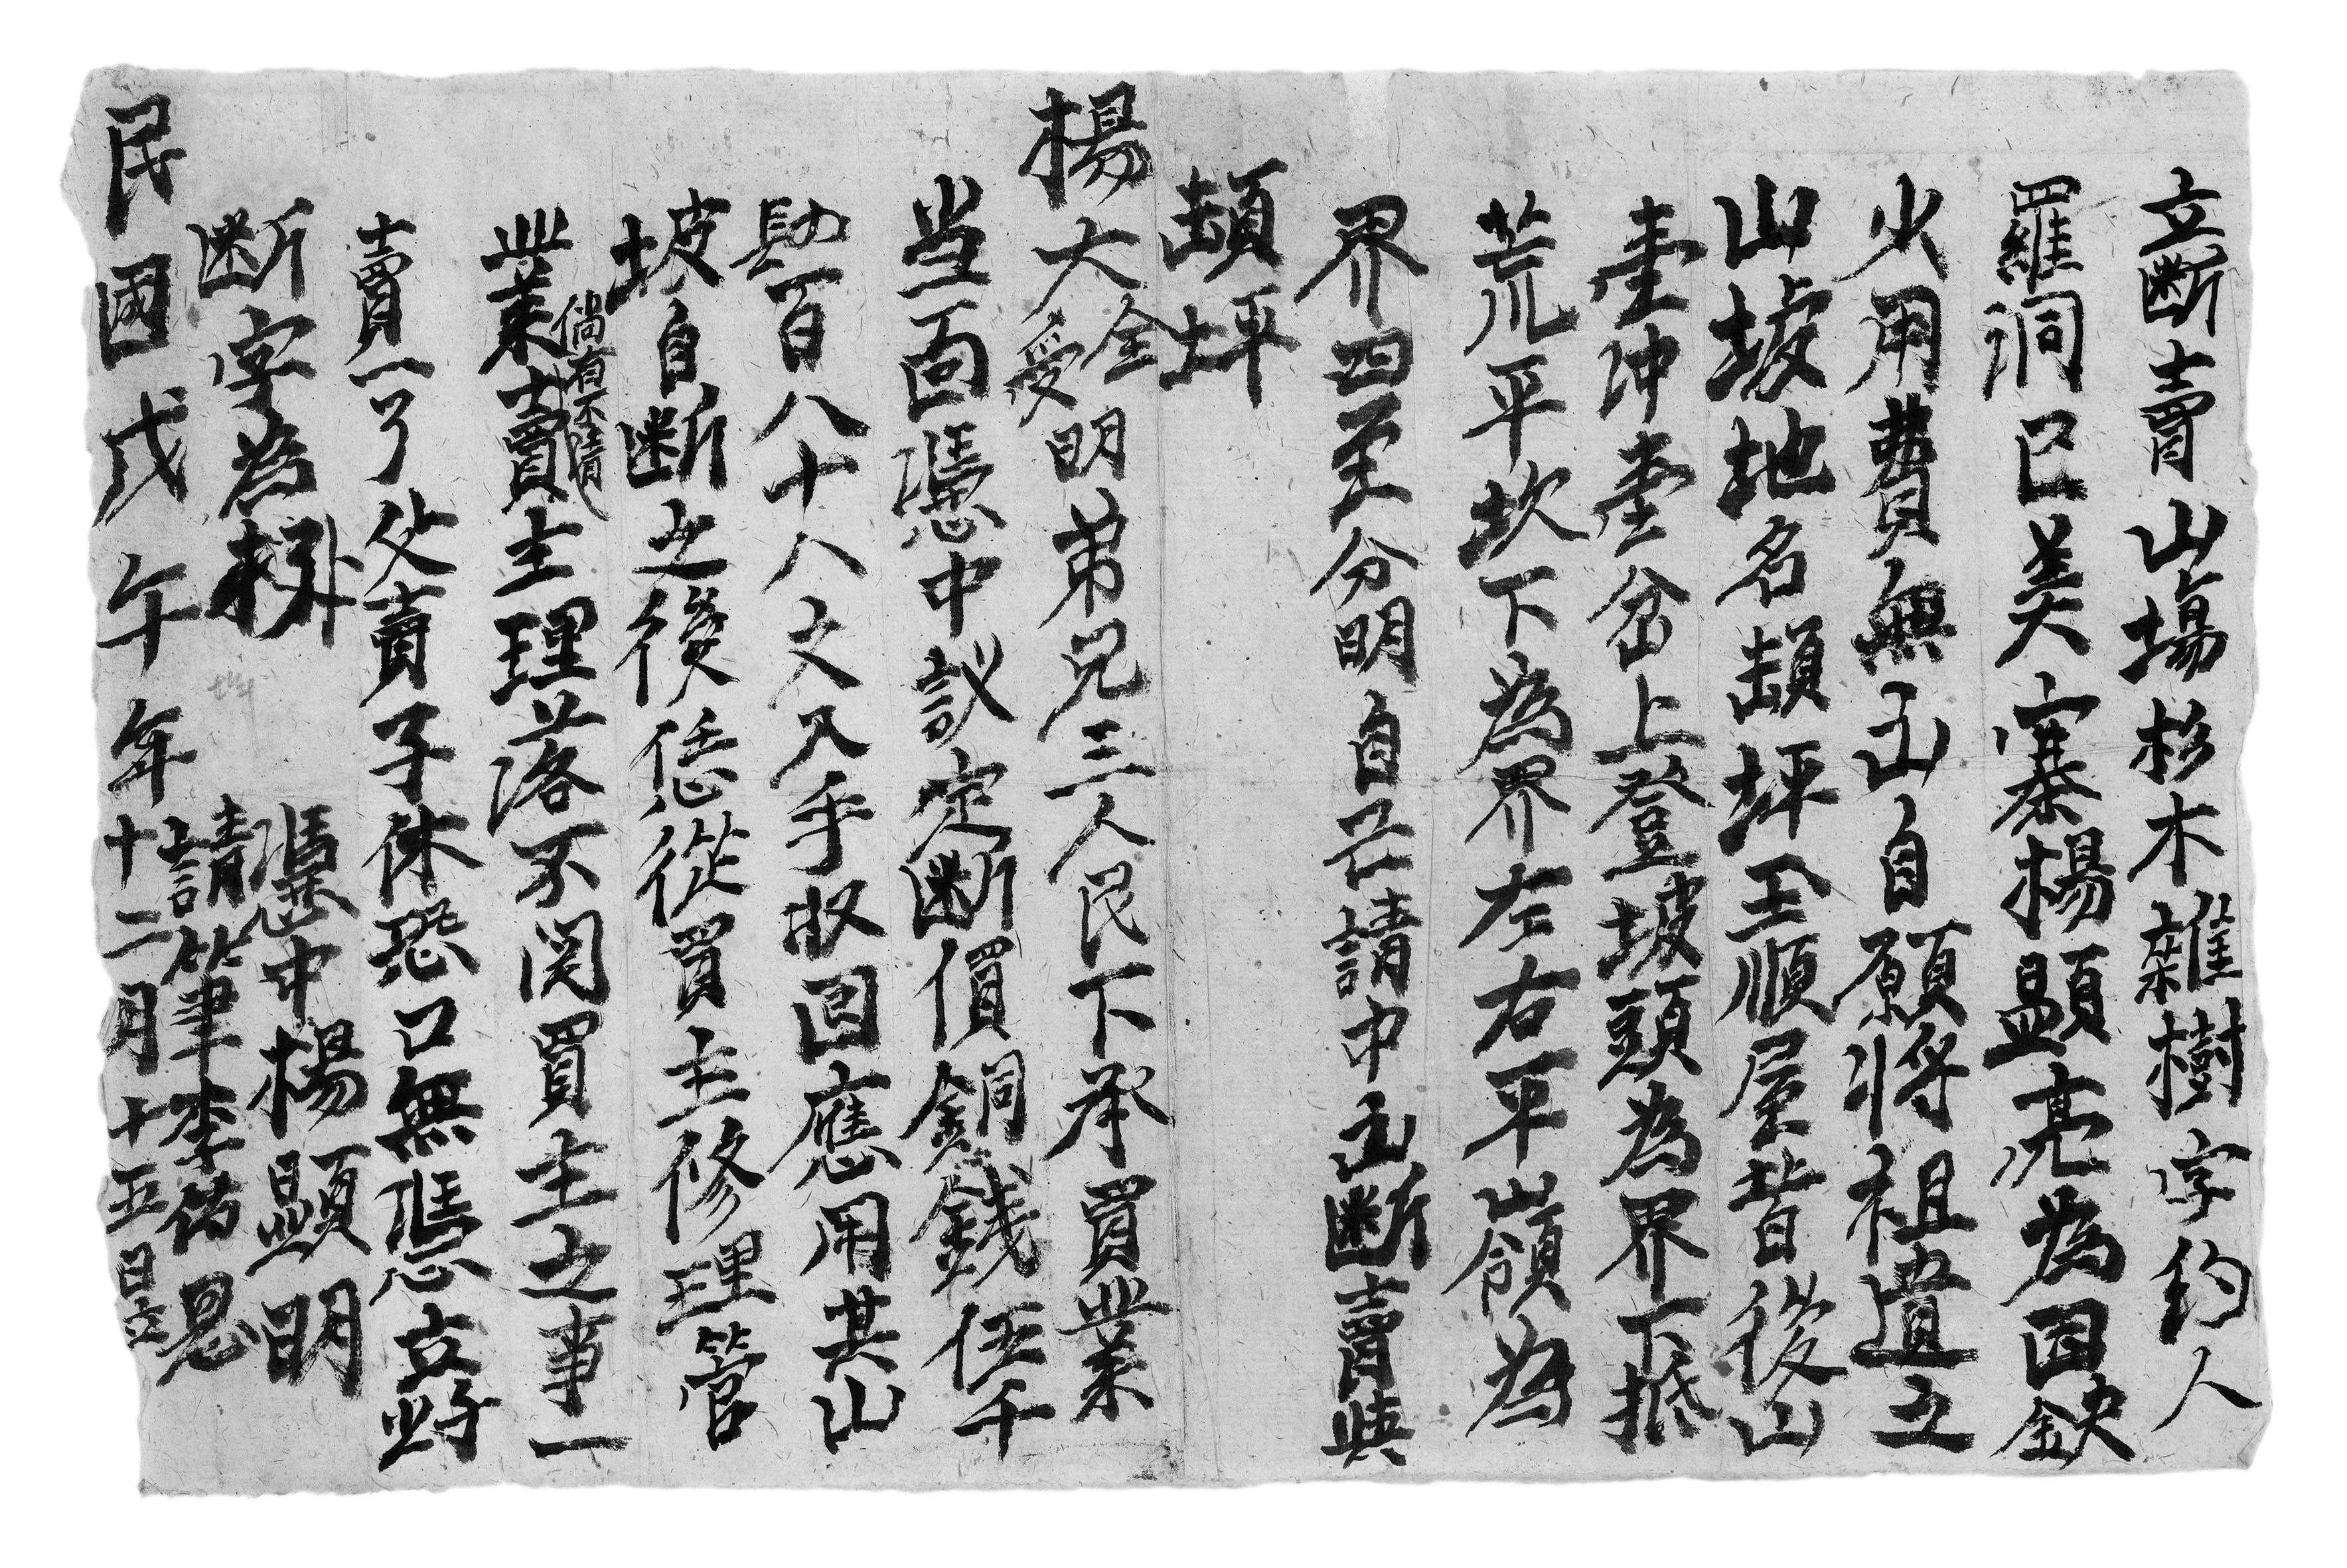 立断賣山塲杉木雜樹字約人
羅洞已美寨楊顕亮為因缺
少用費無出自願將祖遺之
山坡地名頡坪王順屋背後山
壹冲壹岔上登坡頭為界下抵
荒平坎下為界左右平嶺為
界四至分明自己請中出断賣與
頡坪
楊大金受明弟兄三人民下承買業
当面憑中議定断價銅錢伍千
肆百八十八文入手收回應用其山
坡自断之後恁從買主修理管
業倘有不清賣主理落不関買主之事一
賣一了父賣子休恐口無憑立此
断字為據
憑中楊顕明
請筆李佑恩
民國戊午年十二月十五日立